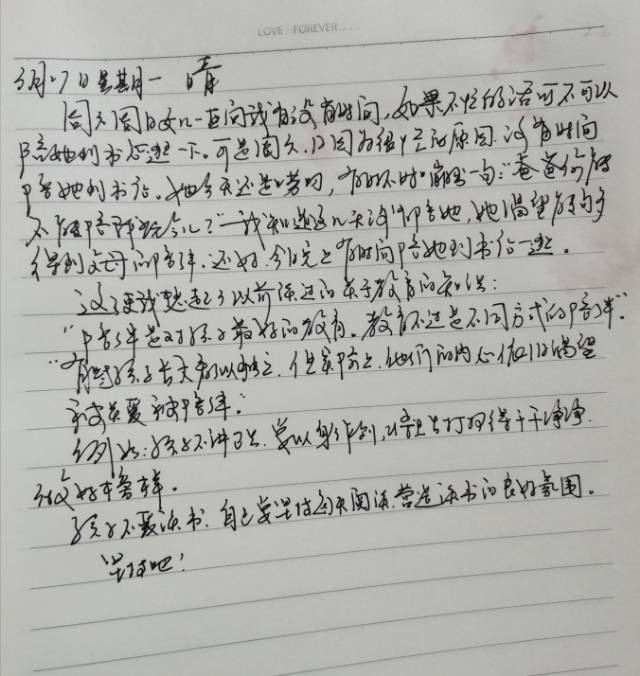 LOVE FOREVER....
3月27日 星期一 晴
周六周日女儿一直问我有没有时间,如果不忙的话可不可以
陪她到书店逛一下。可是周六、日因为很忙的原因,没有时间
陪她到书店。她今天还是嘟囔,时不时蹦出一句:"爸爸你能
不能陪我玩会儿?"我知道这几天没陪她,她渴望能够多
得到父母的陪伴,还好,今日晚上有时间陪她到书店一逛。
这让我想起了以前读过的关于教育的知识:
"陪伴是对孩子最好的教育。教育不过是不同方式的陪伴"。
"有些孩子长大看似独立,但实际上,他们的内心依旧渴望
被关爱被陪伴。"
例如:孩子不讲卫生,要以身作则,以卫生打扫得干干净净,
做好榜样。
孩子不爱读书,自己要坚持每天阅读,营造读书的良好氛围。
坚持吧!